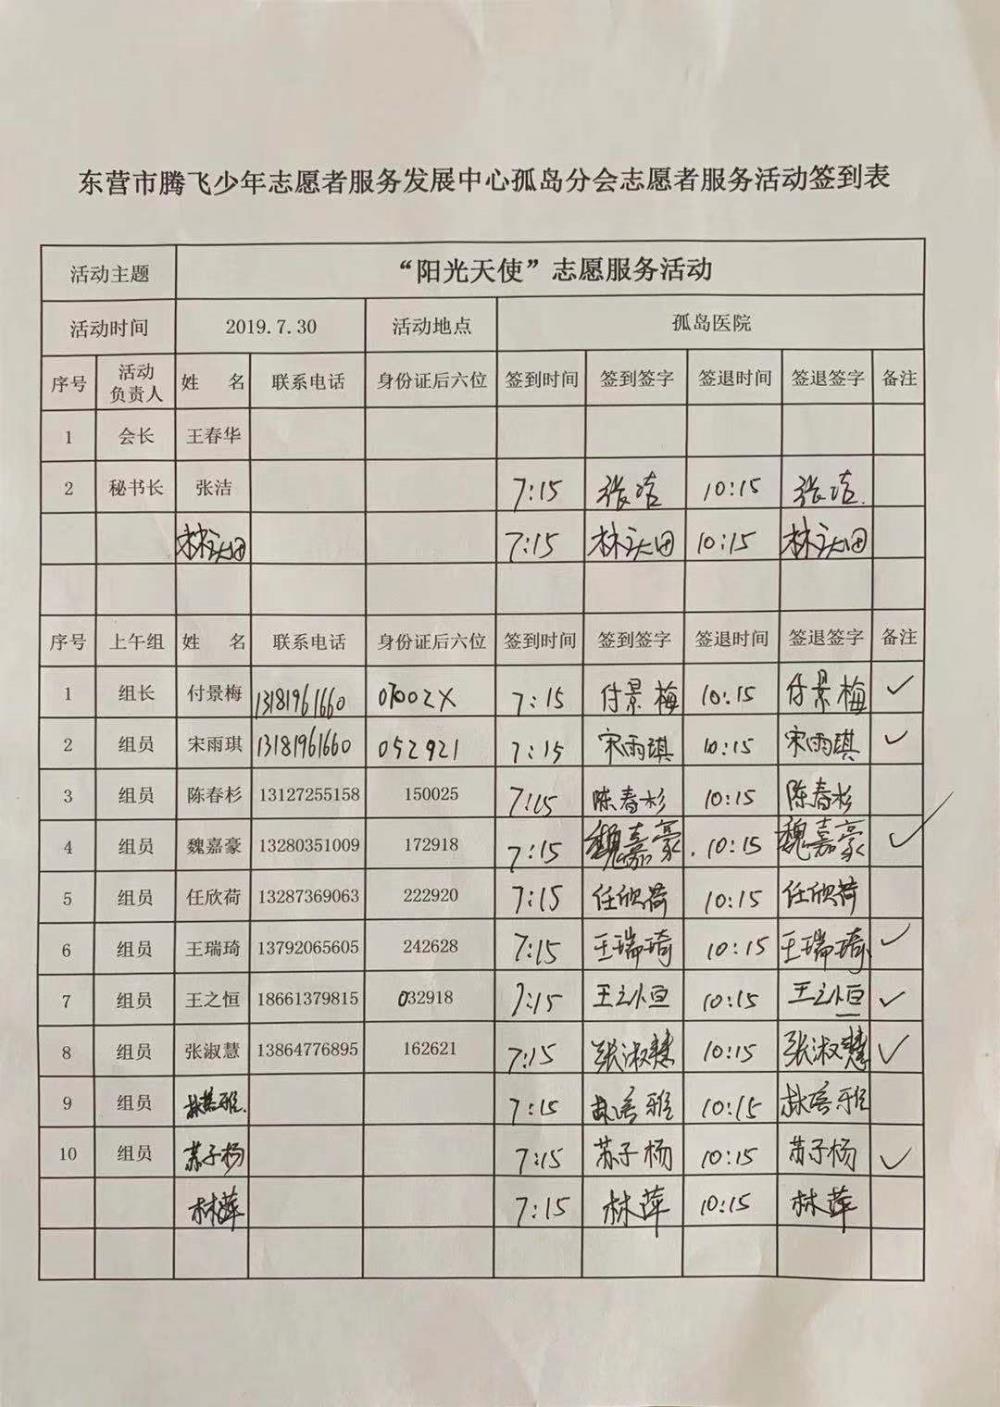 东营市腾飞少年志愿者服务发展中心孤岛分会志愿者服务活动签到表
活动主题 “阳光天使”志愿服务活动
活动时间 2019.7.30 活动地点 孤岛医院
序号 活动负责人 姓 名 联系电话 身份证后六位 签到时间 签到签字 签退时间 签退签字 备注
1 会长 王春华
2 秘书长 张洁 7:15 张洁 10:15 张洁.
7:15 10:15
序号 上午组 姓 名 联系电话 身份证后六位 签到时间 签到签字 签退时间 签退签字 备注
1 组长 付景梅 13181961660 07002X 7:15 付景梅 10:15 付景梅 ✓
2 组员 宋雨琪 13181961660 052921 7:15 宋雨琪 10:15 宋雨琪 ✓
3 组员 陈春杉 13127255158 150025 7:15 陈春杉 10:15 陈春杉
4 组员 魏嘉豪 13280351009 172918 7:15 魏嘉豪 10:15 魏嘉豪 ✓
5 组员 任欣荷 13287369063 222920 7:15 任欣荷 10:15 任欣荷
6 组员 王瑞琦 13792065605 242628 7:15 王瑞琦 10:15 王瑞琦 ✓
7 组员 王之恒 18661379815 032918 7:15 王之恒 10:15 王之恒 ✓
8 组员 张淑慧 13864776895 162621 7:15 张淑慧 10:15 张淑慧 ✓
9 组员 7:15 10:15
10 组员 苏子杨 7:15 苏子杨 10:15 苏子杨 ✓
林萍 7:15 林萍 10:15 林萍